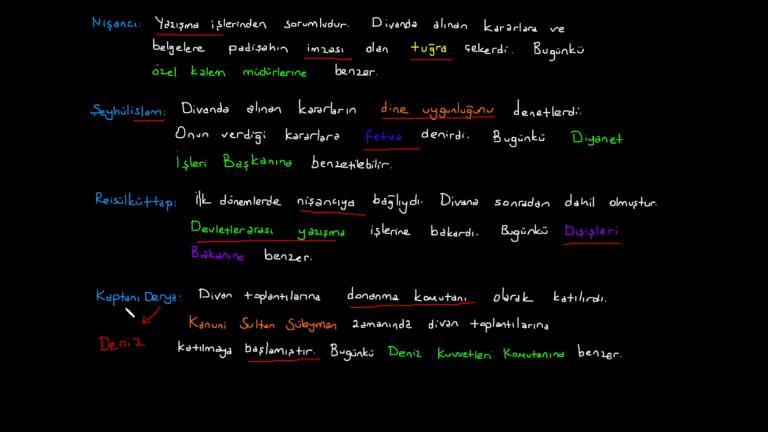 Nişancı: Yazışma işlerinden sorumludur. Divanda alınan kararlara ve
belgelere padişahın imzası olan tuğra çekerdi. Bugünkü
özel kalem müdürlerine benzer.
Şeyhülislam: Divanda alınan kararların dine uygunluğunu denetlerdi.
Onun verdiği kararlara fetva denirdi. Bugünkü Diyanet
İşleri Başkanına benzetilebilir.
Reisülküttap: İlk dönemlerde nişancıya bağlıydı. Divana sonradan dahil olmuştur.
Devletlerarası yazışma işlerine bakardı. Bugünkü Dışişleri
Bakanına benzer.
Kaptanı Derya: Divan toplantılarına donanma komutanı olarak katılırdı.
Kanuni Sultan Süleyman zamanında divan toplantılarına
Deniz katılmaya başlamıştır. Bugünkü Deniz Kuvvetleri Komutanına benzer.